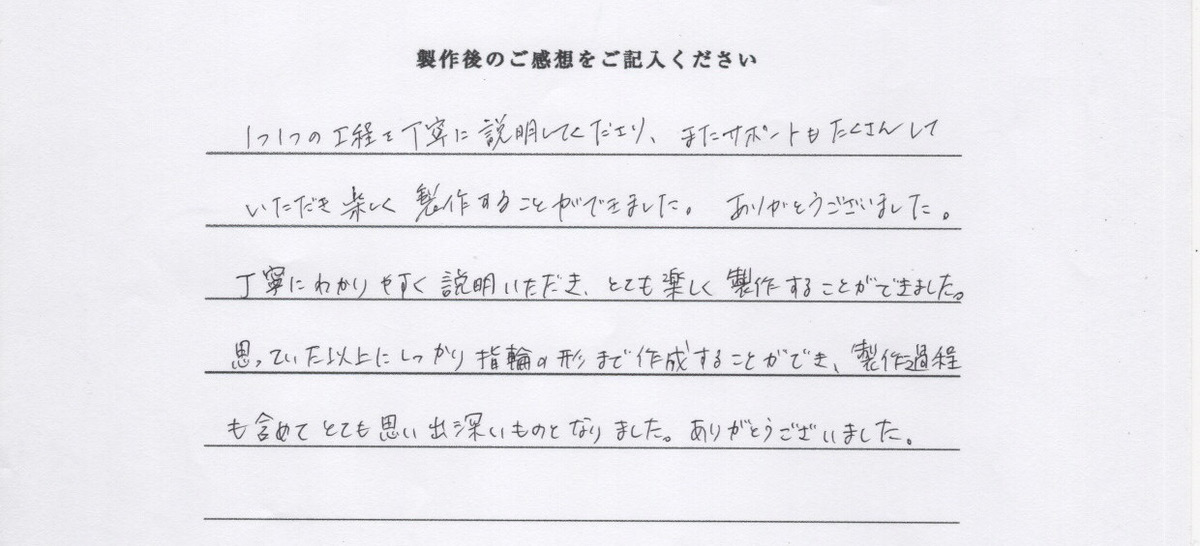 製作後のご感想をご記入ください
1つ1つの工程を丁寧に説明してくださり、またサポートもたくさんして
いただき楽しく製作することができました。ありがとうございました。
丁寧にわかりやすく説明いただき、とても楽しく製作することができました。
思っていた以上にしっかり指輪の形まで作成することができ、製作過程
も含めてとても思い出深いものとなりました。ありがとうございました。